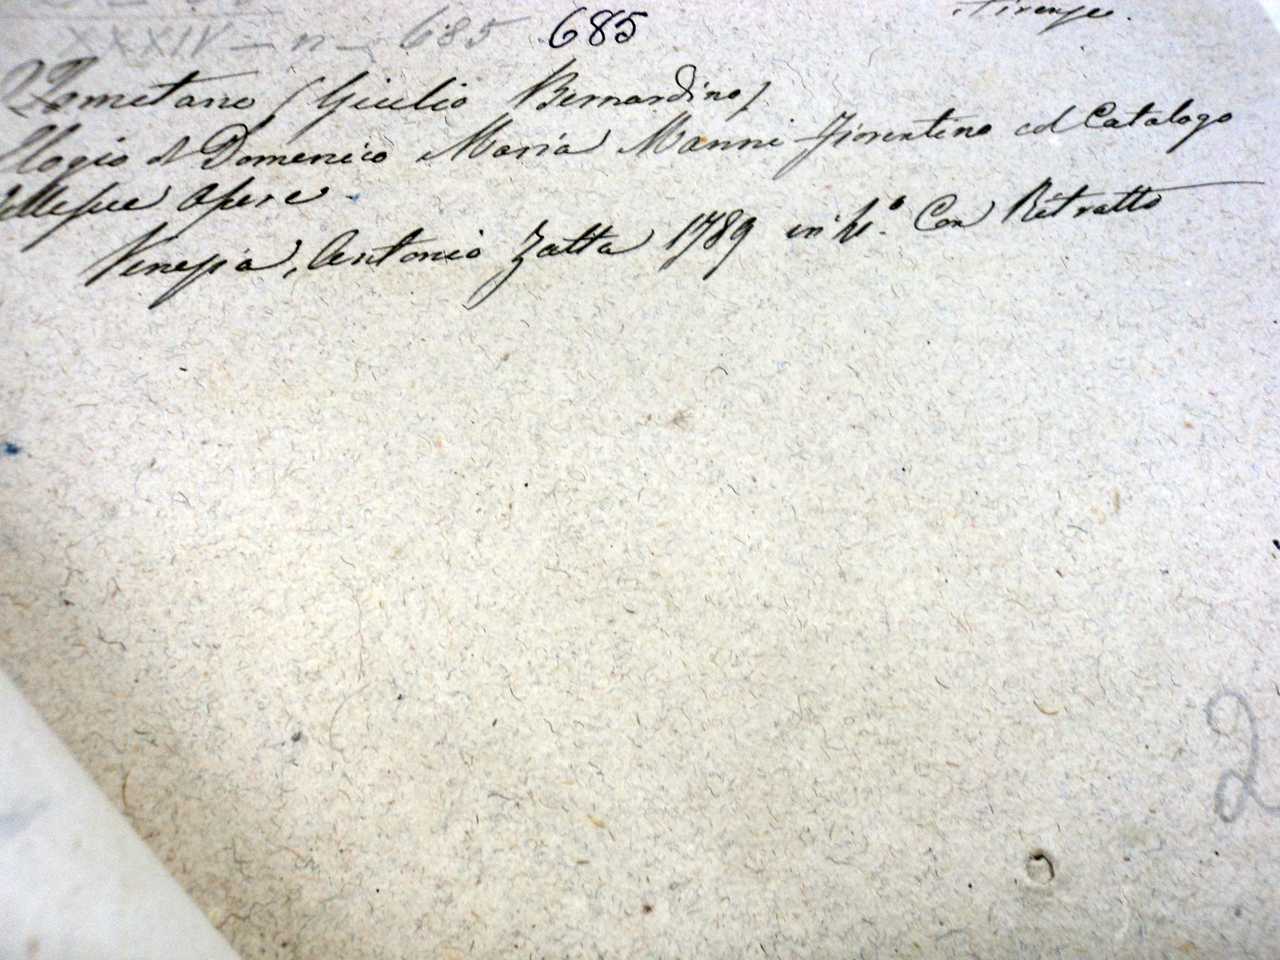 Firenze.
XXXIV - n - 685 685
Tometano (Giulio Bernardino)
Elogio di Domenico Maria Manni Fiorentino col Catalogo
delle sue Opere
Venezia, Antonio Zatta 1789 in 4.° Con Ritratto
2